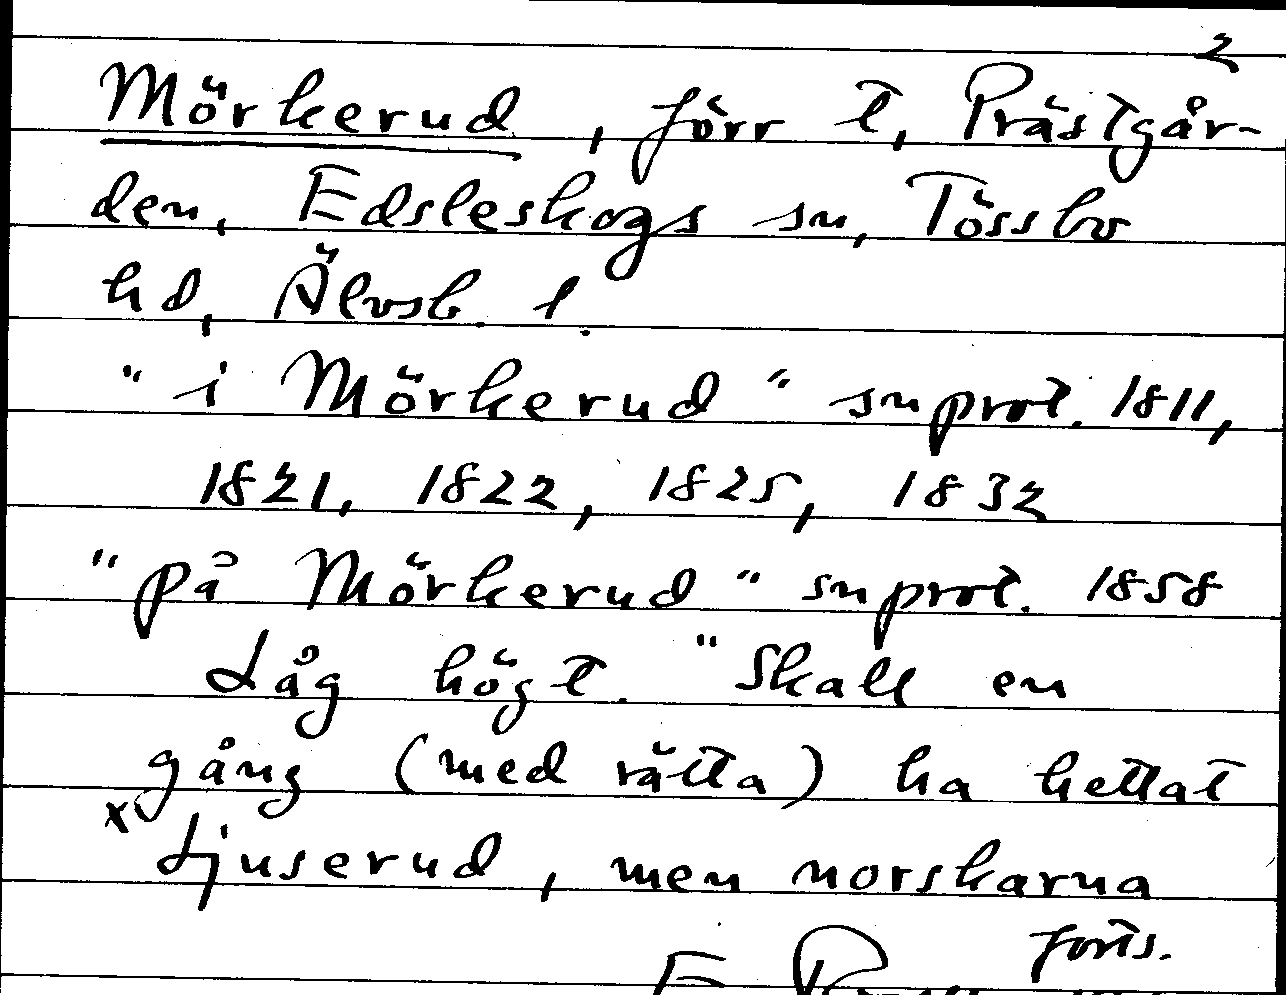 2
Mörkerud, förr t, Prästgår-
den, Edsleskogs sn, Tössbo
hd, Älvsb. l.
"i Mörkerud" snprot. 1811,
1821, 1822, 1825, 1832
"på Mörkerud" snprot. 1858
Låg högt. "Skall en
gång (med rätta) ha hettat
x Ljuserud, men norskarna
forts.